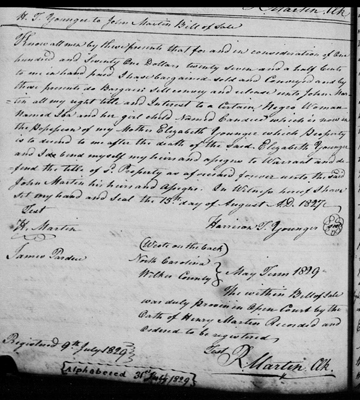 R Martin, Clk
H. T. Younger to John Martin Bill of Sale
Know all men by these presents that for and in consideration of One
hundred and Twenty One Dollars twenty seven and a half Cents
to me in hand paid I have bargained sold and Conveyed and by
these presents do Bargain Sell convey and release unto John Mar
tin all my right title and Interest to a Certain Negro Woman
Named and her girl child Named Candice which is now in
the Possession of my Mother Elizabeth Younger which Property
is to me after the death of the Said Elizabeth Younger
and I do bend myself my heirs and assigns to Warrant and de
fend the title of Sd Property as aforesaid forever unto the said
John Martin his heirs and Assigns. In Witness hereof I have
Set my hand and Seal the 15th day of August A.D. 1827
Test
Harrison T. Younger
H. Martin
James Pardue
(Wrote on the back)
North Carolina
Wilkes County
May Term 1829
The within Bill of Sale
was duly proven in Open Court by the
Oath of Henry Martin Recorded and
Ordered to be registered
Test
R Martin, Clk.
Registered 9th July 1829
Alphabered 31st July 1829